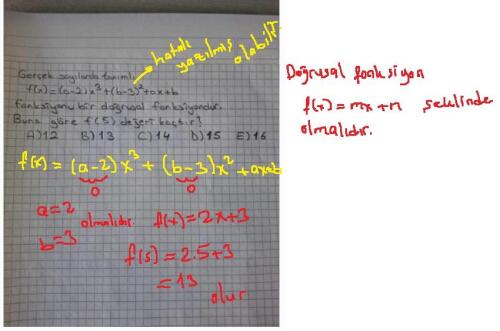 hatalı
yazılmış
olabilir
Gerçek sayılarda tanımlı
f(x)=(a-2)x³+(b-3)²+ax+b
fonksiyonu bir doğrusal fonksiyondur.
Buna göre f(5) değeri kaçtır?
A)12 B)13 C)14 D)15 E)16
f(x) = (a-2)x³ + (b-3)x² + ax+b
0 0
a=2
b=3
olmalıdır.
f(x)=2x+3
f(5)=2.5+3
=13
olur
Doğrusal fonksiyon
f(x)=mx+n şeklinde
olmalıdır.